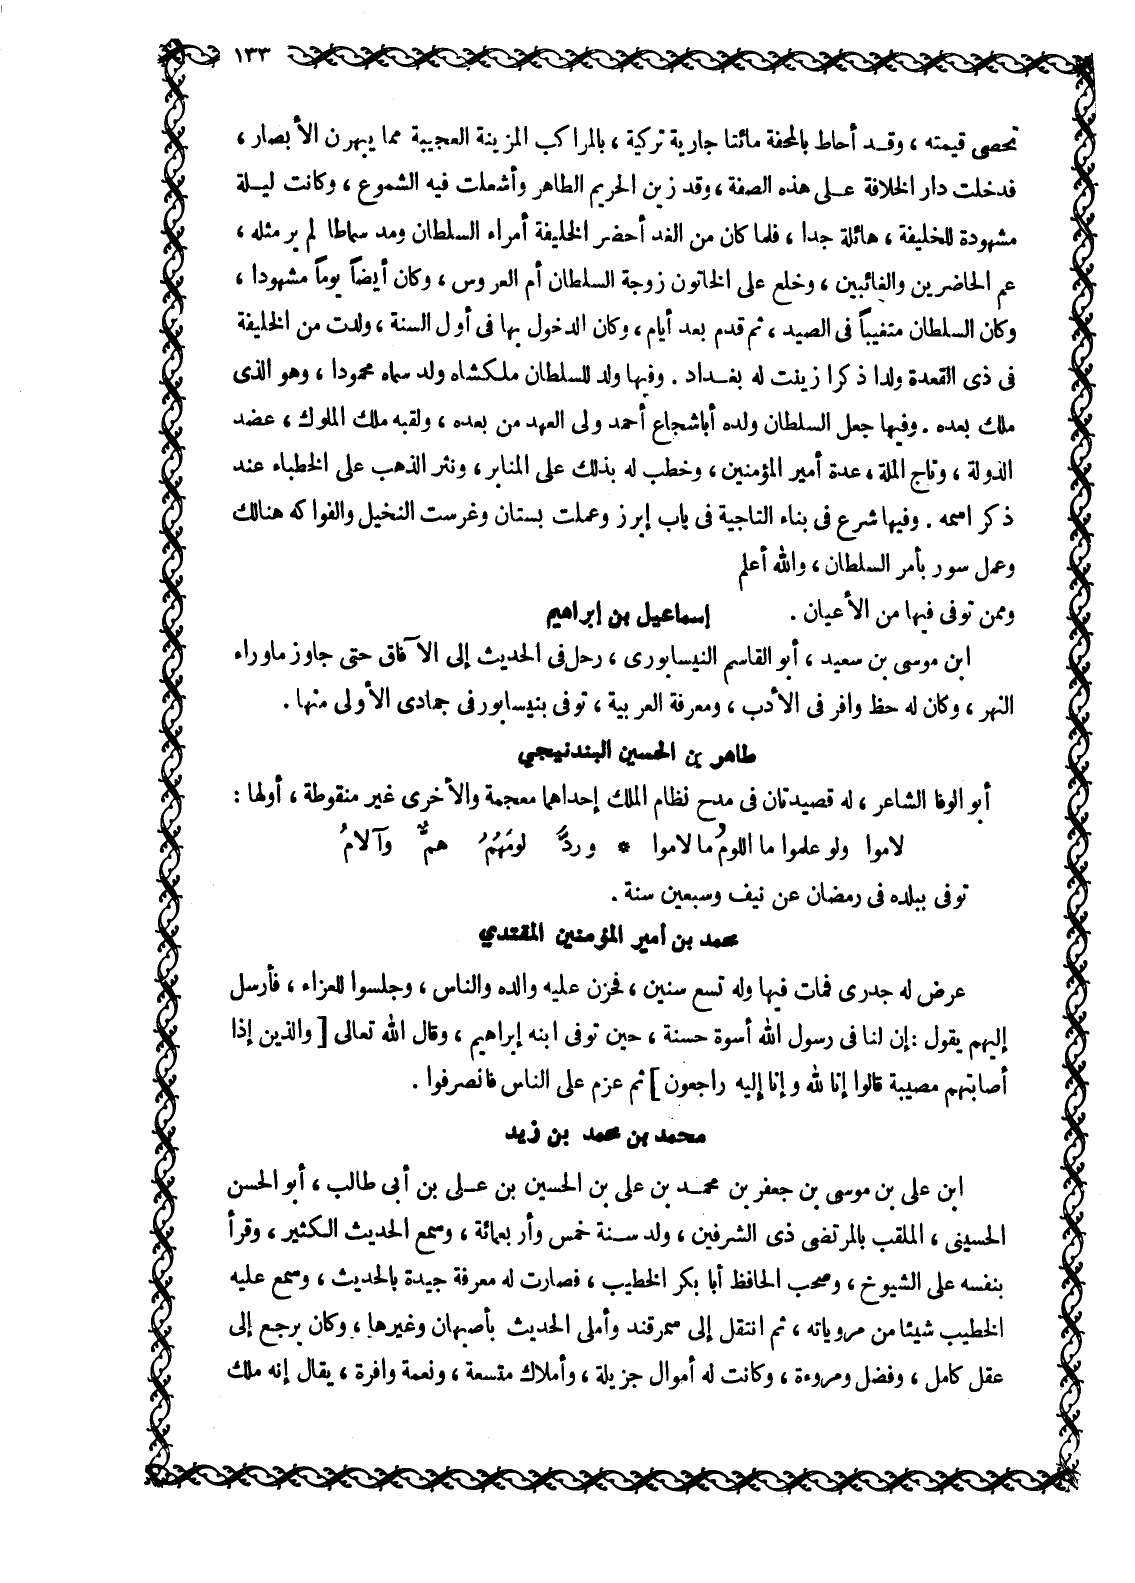 ١٣٣
تحصى قيمته ، وقـد أحاط بالمحفة مائتا جارية تركية ، بالمراكب المزينة العجيبة مما يبهرن الأبصار ،
فدخلت دار الخلافة عـلى هذه الصفة ، وقد زين الحريم الطاهر وأشعلت فيه الشموع ، وكانت ليـلة
مشهودة للخليفة ، هائلة جدا ، فلما كان من الغد أحضر الخليفة أمراء السلطان ومد سماطا لم ير مثله ،
عم الحاضرين والغائبين ، وخلع على الخاتون زوجة السلطان أم العروس ، وكان أيضاً يوماً مشهودا ،
وكان السلطان متغيباً فى الصيد ، ثم قدم بعد أيام ، وكان الدخول بها فى أول السنة ، ولدت من الخليفة
فى ذى القعدة ولدا ذكرا زينت له بغـداد . وفيها ولد للسلطان ملـكشاه ولد سماه محمودا ، وهو الذى
ملك بعده . وفيها جعل السلطان ولده أباشجاع أحمد ولى العهد من بعده ، ولقبه ملك الملوك ، عضد
الدولة ، وتاج الملة ، عدة أمير المؤمنين ، وخطب له بذلك على المنابر ، ونثر الذهب على الخطباء عند
ذكر اسمه . وفيها شرع فى بناء التاجية فى باب إبرز وعملت بستان وغرست النخيل والفواكه هنالك
وعمل سور بأمر السلطان ، والله أعلم
وممن توفى فيها من الأعيان . إسماعيل بن إبراهيم
ابن موسى بن سعيد ، أبو القاسم النيسابورى ، رحل فى الحديث إلى الآفاق حتى جاوز ماوراء
النهر ، وكان له حظ وافر فى الأدب ، ومعرفة العربية ، توفى بنيسابور فى جمادى الأولى منها .
طاهر بن الحسين البندنيجي
أبو الوفا الشاعر ، له قصيدتان فى مدح نظام الملك إحداهما معجمة والأخرى غير منقوطة ، أولها :
لاموا ولو علموا ما اللومُ ما لاموا * وردَّ لومَهُمُ همٌّ وآلامُ
توفى ببلده فى رمضان عن نيف وسبعين سنة .
محمد بن أمير المؤمنين المقتدي
عرض له جدرى فمات فيها وله تسع سنين ، فحزن عليه والده والناس ، وجلسوا للعزاء ، فأرسل
إليهم يقول : إن لنا فى رسول الله أسوة حسنة ، حين توفى ابنه إبراهيم ، وقال الله تعالى [ والذين إذا
أصابتهم مصيبة قالوا إنا لله وإنا إليه راجعون ] ثم عزم على الناس فانصرفوا .
محمد بن محمد بن زيد
ابن على بن موسى بن جعفر بن محمـد بن على بن الحسين بن عـلى بن أبى طالب ، أبو الحسن
الحسينى ، الملقب بالمرتضى ذى الشرفين ، ولد سـنة خمس وأربعمائة ، وسمع الحديث الـكثير ، وقرأ
بنفسه على الشيوخ ، وصحب الحافظ أبا بكر الخطيب ، فصارت له معرفة جيدة بالحديث ، وسمع عليه
الخطيب شيئا من مروياته ، ثم انتقل إلى سمرقند وأملى الحديث بأصبهان وغيرها ، وكان يرجع إلى
عقل كامل ، وفضل ومروءة ، وكانت له أموال جزيلة ، وأملاك متسعة ، ونعمة وافرة ، يقال إنه ملك